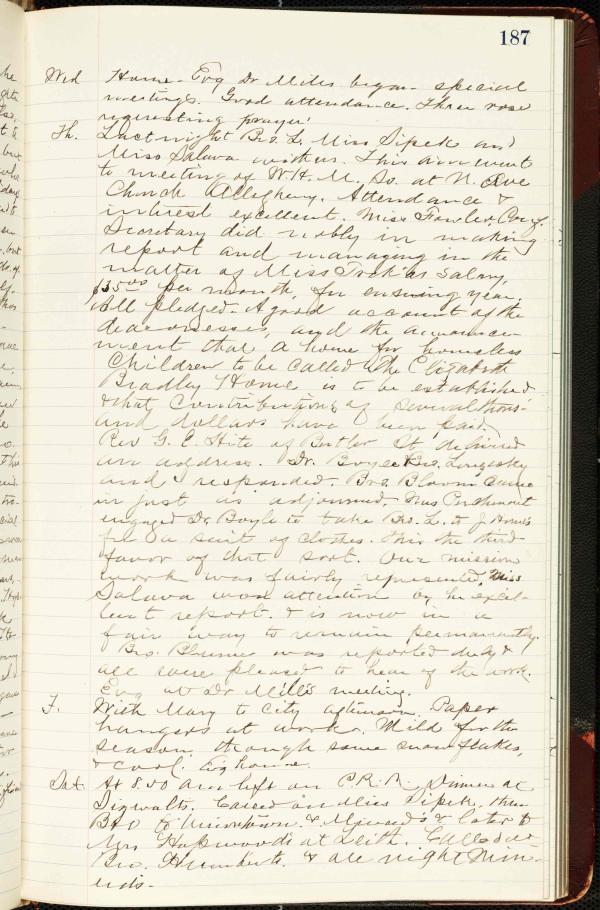 187
Wed Home - Evg Dr Mills began special
meetings. Good attendance. Three rose
requesting prayer.
Th. Last night Bro. L. Miss Sipek and
Miss Salava with us. This a.m. went
to meeting of W.H.M. So. at N. Ave
Church Allegheny. Attendance &
interest excellent. Miss Fowler, Cor'g.
Secretary did nobly in making
report and managing in the
matter of Miss salary,
$35.00 per month, for ensuing year.
All pledged. A good account of the
deaconesses, and the announce-
ment that a home for homeless
Children to be called The Elizabeth
Bradley Home is to be established
& that contributions of several thous-
and dollars have been paid.
Rev G. E. Hite of Butler St delivered
an address. Dr. Boyle & Bro.
and I responded. Bro. Bloom came
in just as adjourned. Mrs
engaged Dr Boyle to take Bro. L. to J. Horne's
for a suit of clothes. This the third
favor of that sort. Our mission
work was fairly represented. Miss
Salava won attention by her excel-
lent report. & is now in a
fair way to remain permanently.
Bro. was reported duly &
all were pleased to hear of the work.
Evg at Dr Mills meeting.
F. With Mary to City afternoon. Paper
hangers at work. Mild for the
season, though some snow flakes,
& cool. Evg home.
Sat. At 8.50 am left on P.R.R. Dinner at
Sigwalts. Called on Miss Sipek, then
B&O to Uniontown. & & later to
Mrs Hopwoods at Leith. Called at
Bro. Humberts. & all night Min-
erds.